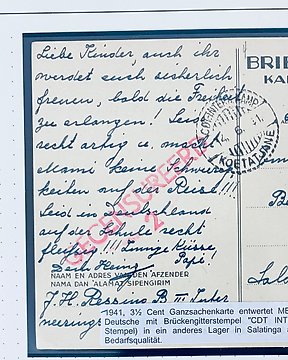 Liebe Kinder, auch ihr
werdet euch sicherlich
freuen, bald die Freiheit
zu erlangen! Seid
recht artig u. macht
Mami keine Schwierig-
keiten auf der Reise!!!
Seid in Deutschland
auf der Schule recht
fleißig!!! Innige Küsse,
Papi!
GECENSUREERD
2
NAAM EN ADRES VAN DEN AFZENDER
NAMA DAN 'ALAMAT SIPENGIRIM
J. H.
neerings
BRIE
KA
KOETATJANE
1941, 3½ Cent Ganzsachenkarte entwertet ME
Deutsche mit Brückengitterstempel "CDT INT
Stempel) in ein anderes Lager in Salatinga a
Bedarfsqualität.